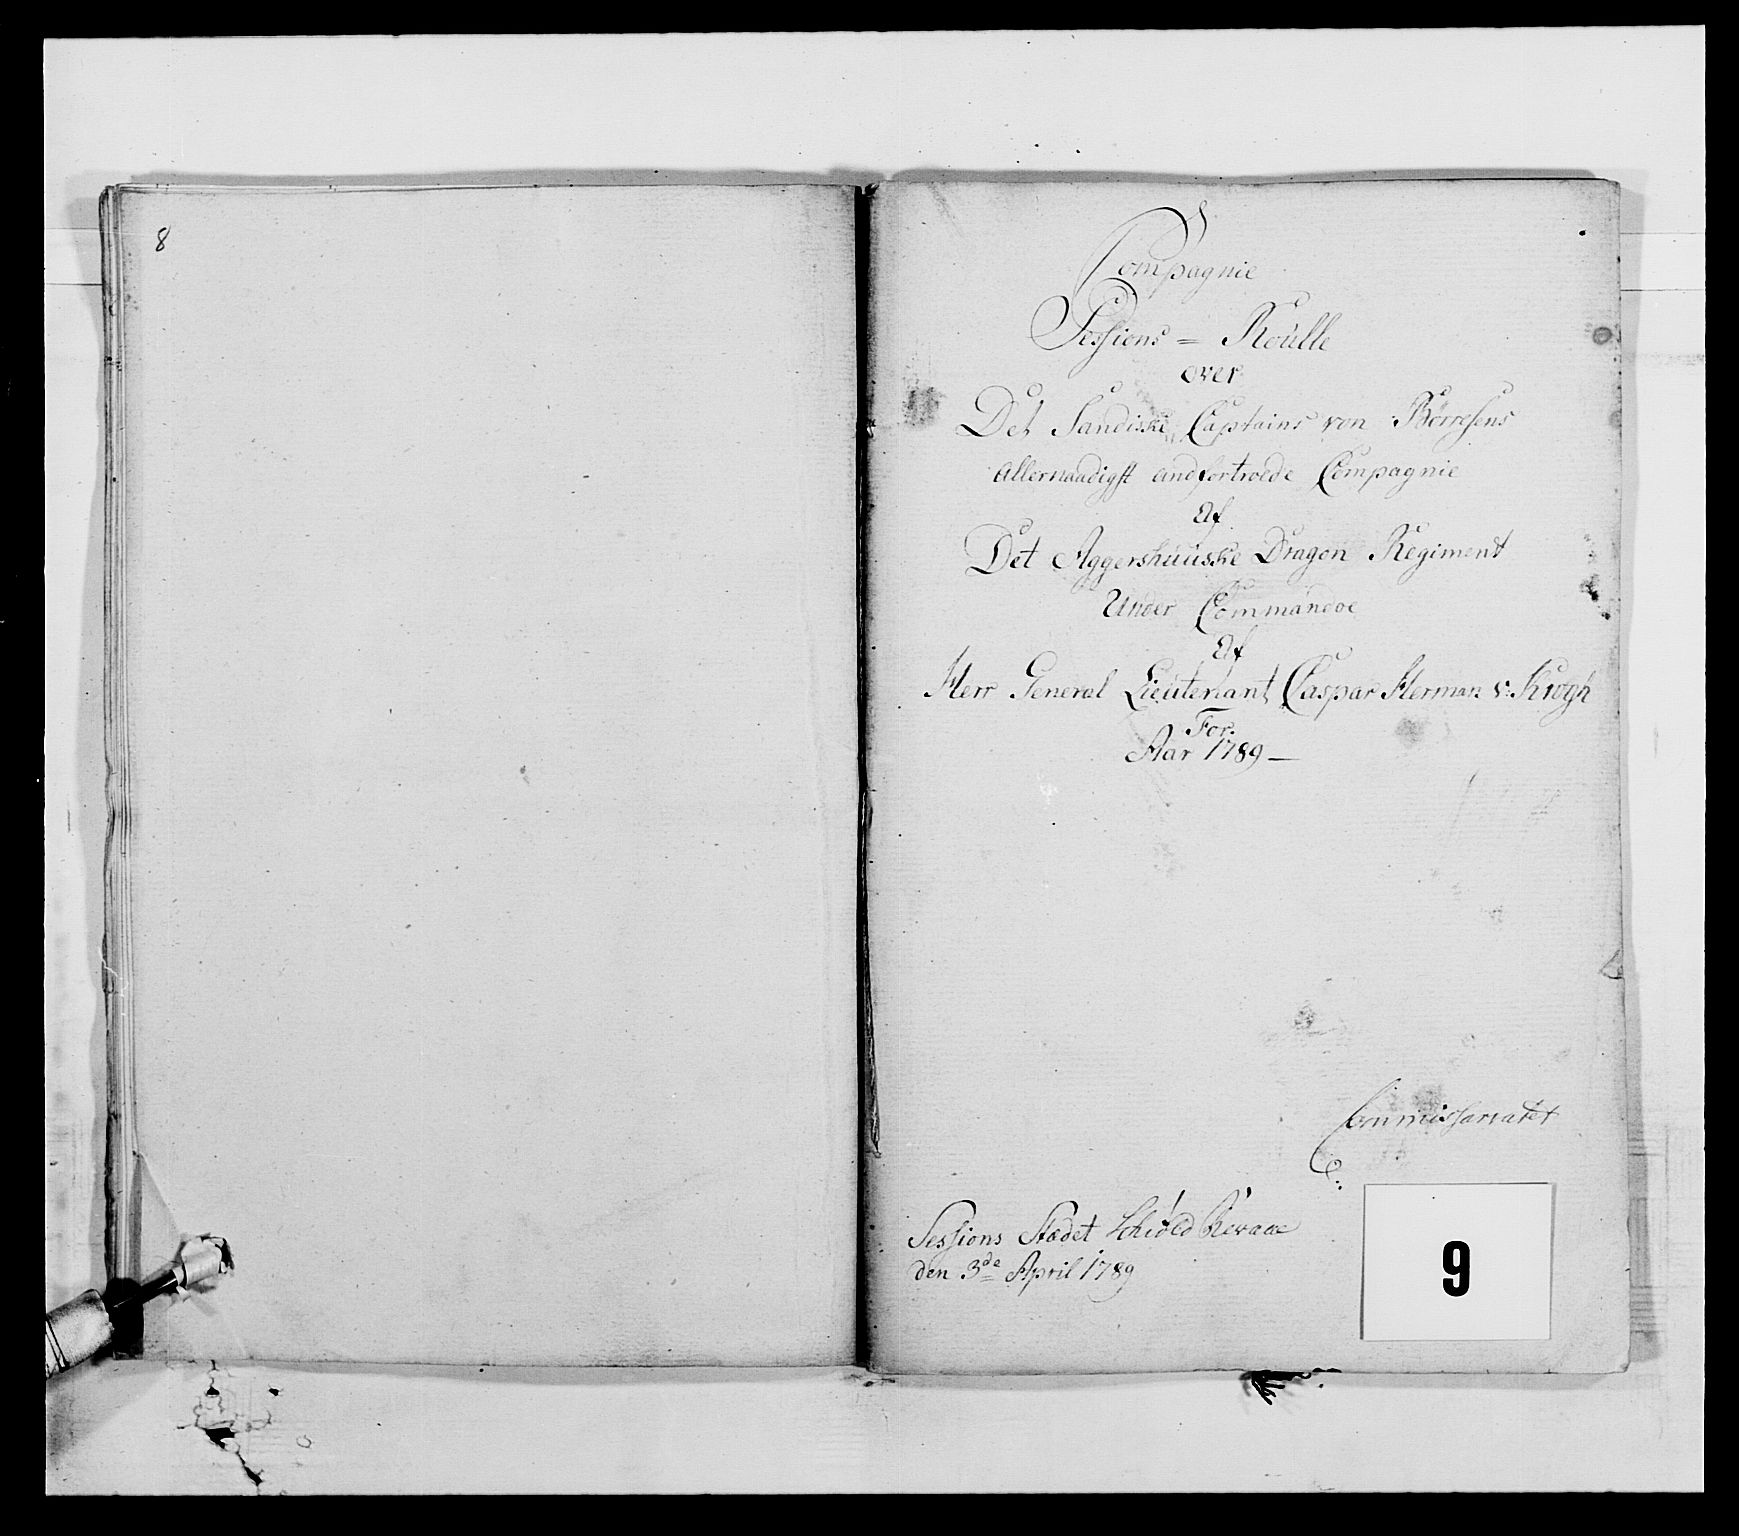 8
Compagnie
Sessions = Roulle
over
Det Sandiske Captains von Börresens
Allernaadigst andfortroede Compagnie
Af
Det Aggershuuiske Dragon Regiment
Under Commandoe
Af
Herr General Lieutenant Caspar Herman v: Krogh
For.
Aar 1789 —
Commissariatet
Sessions Stædet
den 3de April 1789
9